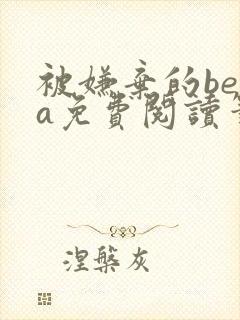 被嫌棄的be
a免費閱讀
涅槃灰